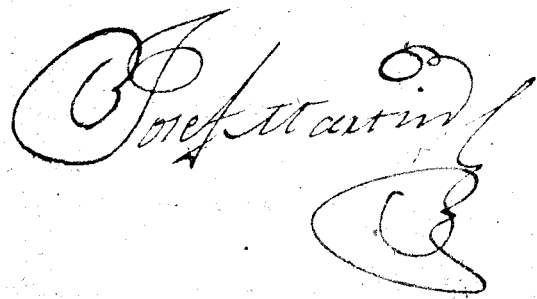 Josef Martin